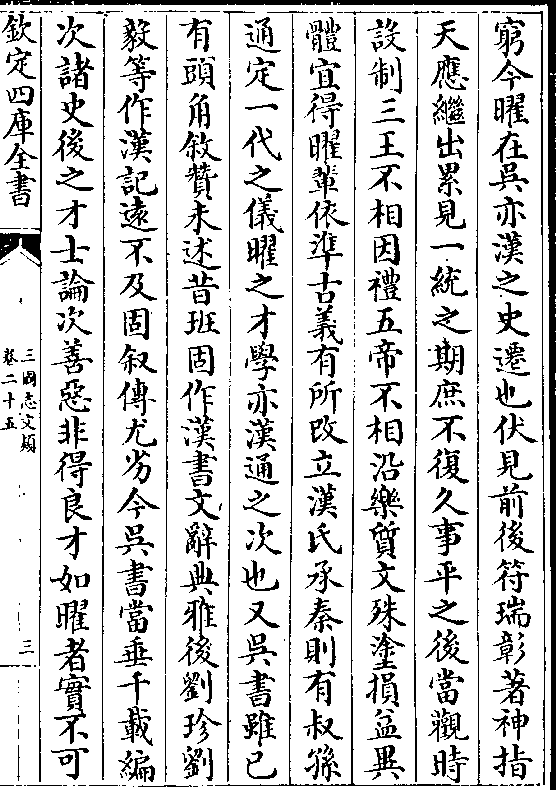 窮今曜在吳亦漢之史遷也伏見前後符瑞彰著神指
天應繼出累見一統之期庶不復久事平之後當觀時
設制三王不相因禮五帝不相沿樂質文殊塗損益異
體宜得曜輩依準古義有所改立漢氏承秦則有叔孫
通定一代之儀曜之才學亦漢通之次也又吳書雖已
有頭角敘贊未述昔班固作漢書文辭典雅後劉珍劉
毅等作漢記遠不及固叙傳尤劣今吳書當垂千載編
次諸史後之才士論次善惡非得良才如曜者實不可
欽定四庫全書
三國志文類
卷二十五
三